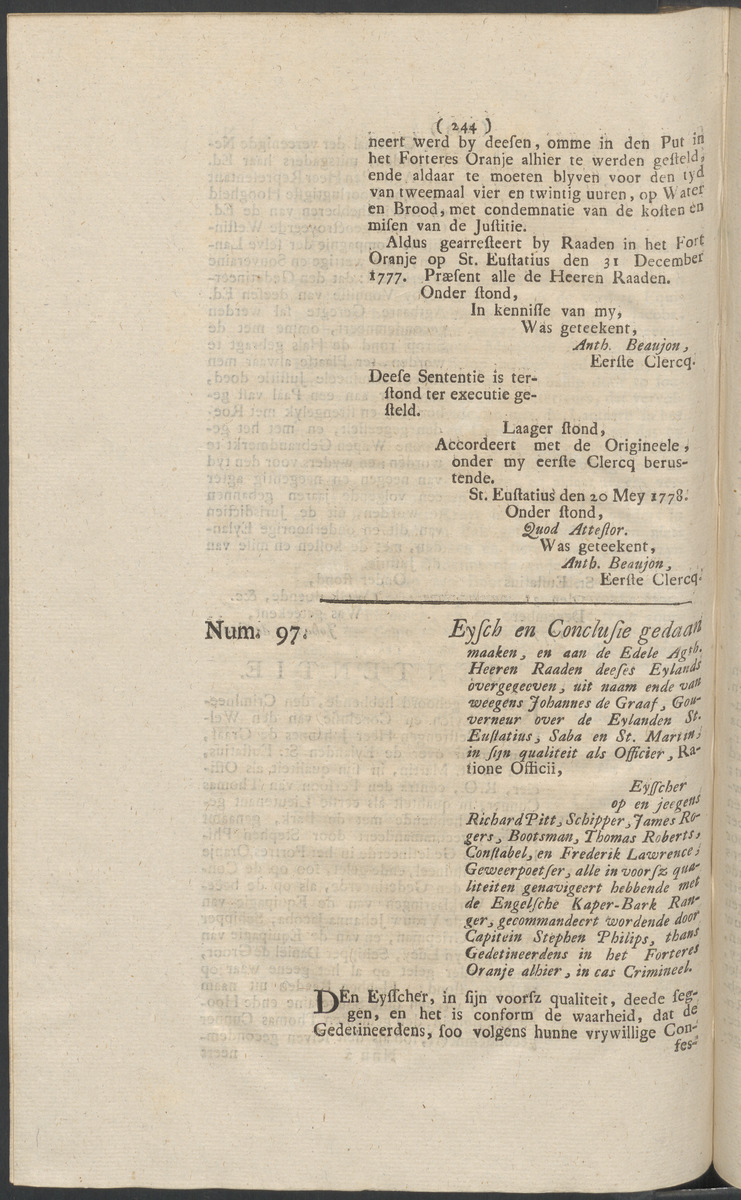 ( 244 )
neert werd by deesen, omme in den Put in
het Forteres Oranje alhier te werden gesteld,
ende aldaar te moeten blyven voor den tyd
van tweemaal vier en twintig uuren, op Water
en Brood, met condemnatie van de kosten en
misen van de Justitie.
Aldus gearresteert by Raaden in het Fort
Oranje op St. Eustatius den 31 December
1777. Præsent alle de Heeren Raaden.
Onder stond,
In kennisse van my,
Was geteekent,
Anth. Beaujon,
Eerste Clercq.
Deese Sententie is ter-
stond ter executie ge-
steld.
Laager stond,
Accordeert met de Origineele,
onder my eerste Clercq berus-
tende.
St. Eustatius den 20 Mey 1778.
Onder stond,
Quod Attestor.
Was geteekent,
Anth. Beaujon,
Eerste Clercq.
Num. 97. Eysch en Conclusie gedaan
maaken, en aan de Edele Agtb.
Heeren Raaden deeses Eylands
overgegeeven, uit naam ende van
weegens Johannes de Graaf, Gou-
verneur over de Eylanden St.
Eustatius, Saba en St. Martin,
in sijn qualiteit als Officier, Ra-
tione Officii,
Eysscher
op en jeegens
Richard Pitt, Schipper, James Ro-
gers, Bootsman, Thomas Roberts,
Constabel, en Frederik Lawrence,
Geweerpoetser, alle in voorsz qua-
liteiten genavigeert hebbende met
de Engelsche Kaper-Bark Ran-
ger, gecommandeert wordende door
Capitein Stephen Philips, thans
Gedetineerdens in het Forteres
Oranje alhier, in cas Crimineel.
DEn Eysscher, in sijn voorsz qualiteit, deede seg-
gen, en het is conform de waarheid, dat de
Gedetineerdens, soo volgens hunne vrywillige Con-
fes-